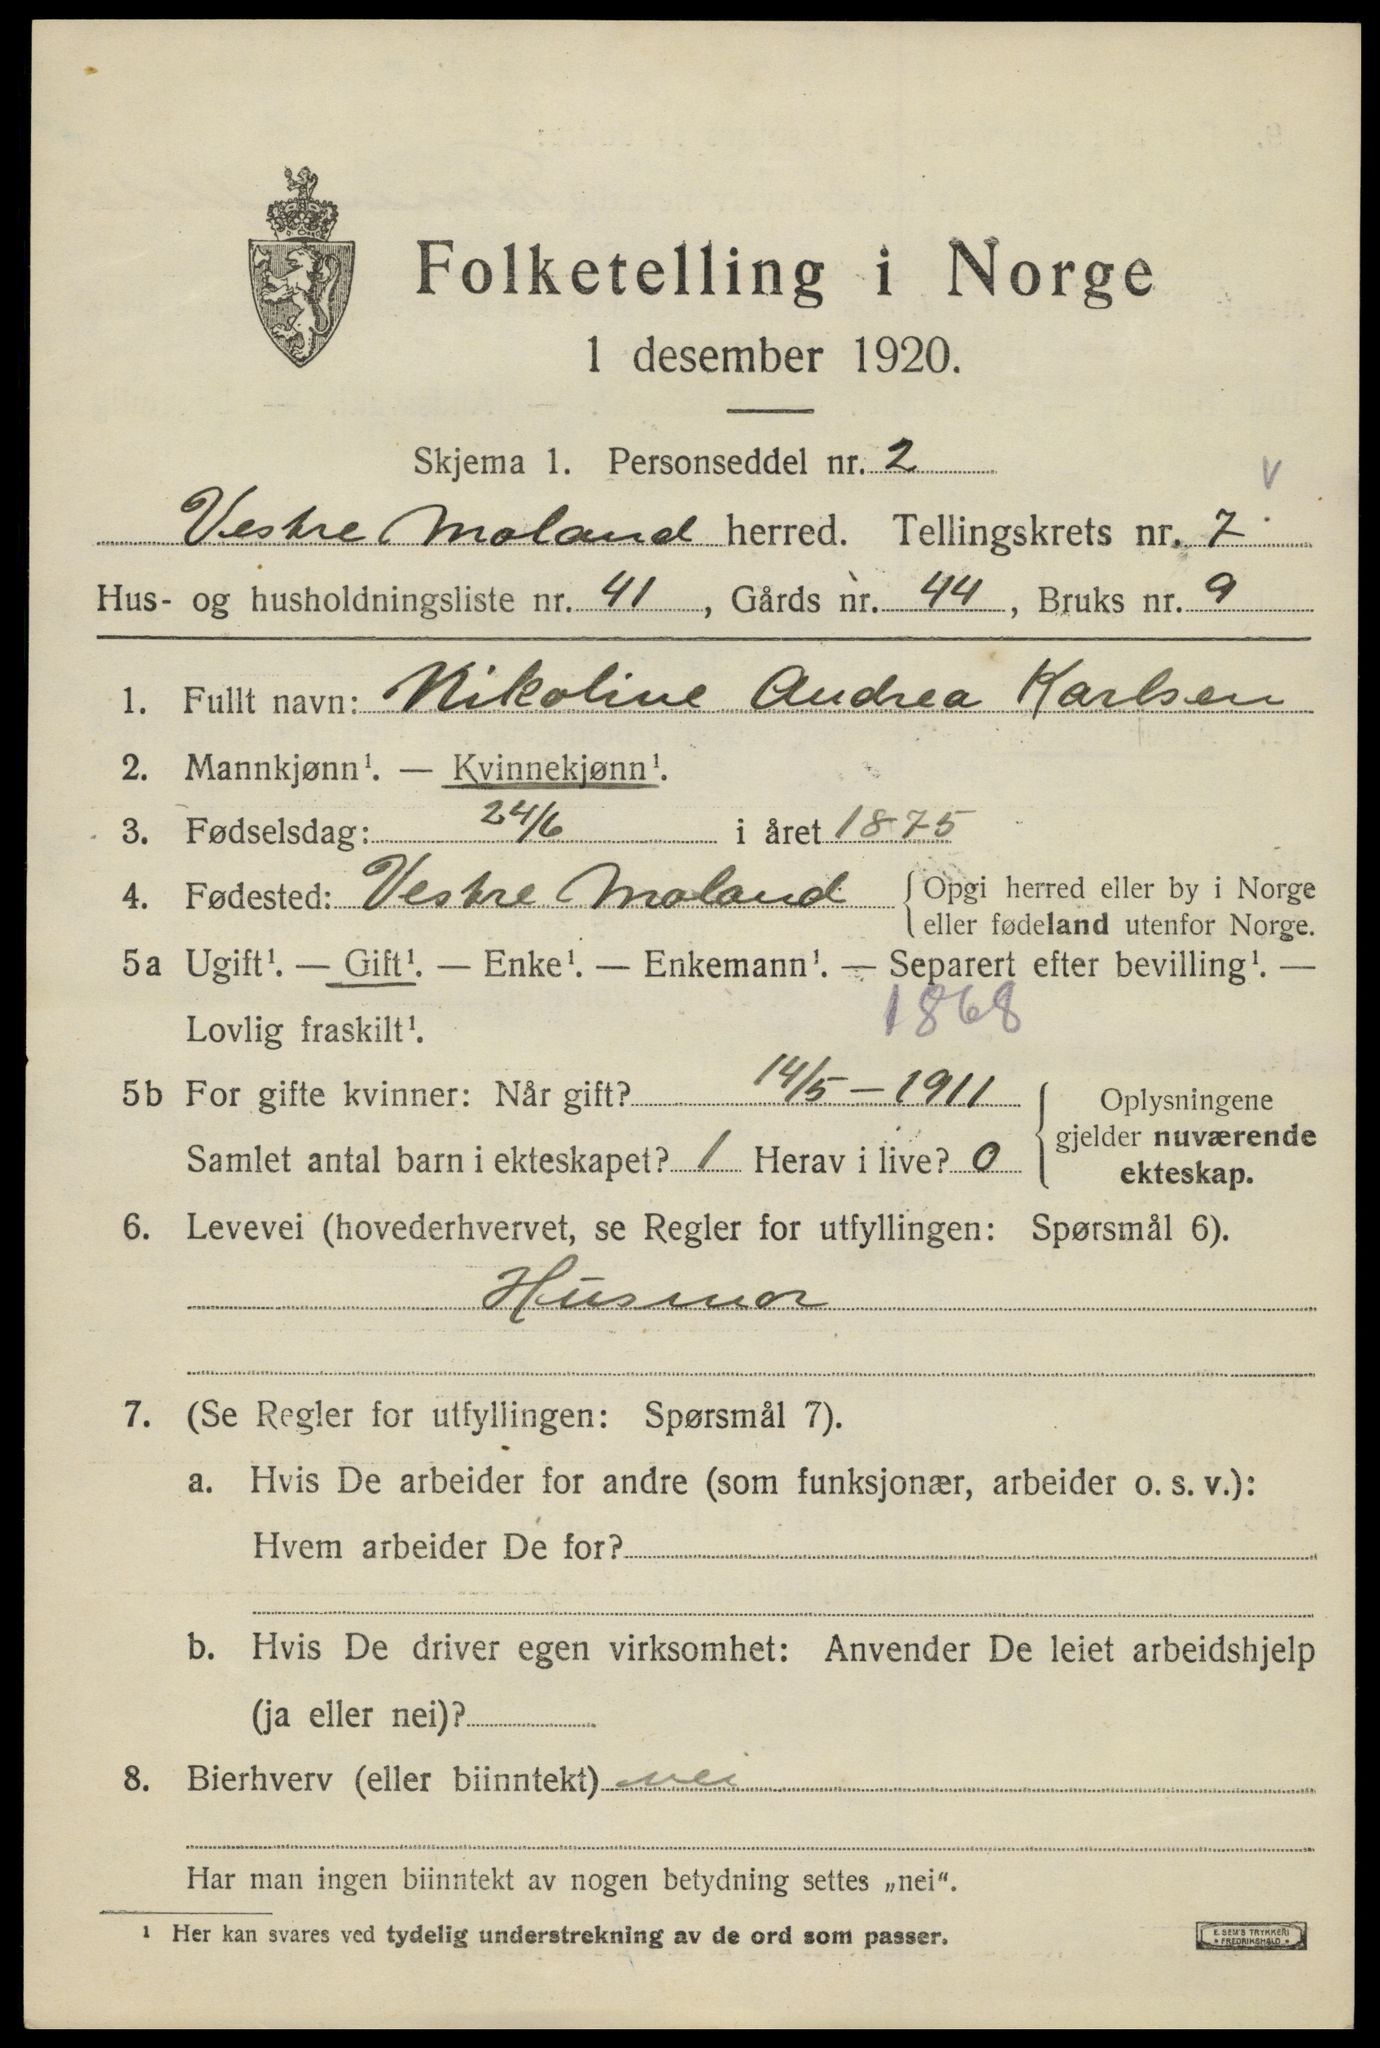 Folketelling i Norge
1 desember 1920.
Skjema 1. Personseddel nr. 2
V
Vestre Moland herred. Tellingskrets nr. 7
Hus- og husholdningsliste nr. 41, Gårds nr. 44, Bruks nr. 9
1. Fullt navn: Nikoline Andrea Karlsen
2. Mannkjønn¹. — Kvinnekjønn¹.
3. Fødselsdag: 24/6 i året 1875
4. Fødested: Vestre Moland {Opgi herred eller by i Norge
eller fødeland utenfor Norge.
5a Ugift¹. — Gift¹. — Enke¹. — Enkemann¹. — Separert efter bevilling¹. —
Lovlig fraskilt¹. 1868
5b For gifte kvinner: Når gift? 14/5 — 1911
Samlet antal barn i ekteskapet? 1 Herav i live? 0
Oplysningene
gjelder nuværende
ekteskap.
6. Levevei (hovederhvervet, se Regler for utfyllingen: Spørsmål 6).
Husmor
7. (Se Regler for utfyllingen: Spørsmål 7).
a. Hvis De arbeider for andre (som funksjonær, arbeider o. s. v.):
Hvem arbeider De for?
b. Hvis De driver egen virksomhet: Anvender De leiet arbeidshjelp
(ja eller nei)?
8. Bierhverv (eller biinntekt) nei
Har man ingen biinntekt av nogen betydning settes „nei“.
¹ Her kan svares ved tydelig understrekning av de ord som passer.
E. SEM'S TRYKKERI
FREDRIKSHALD